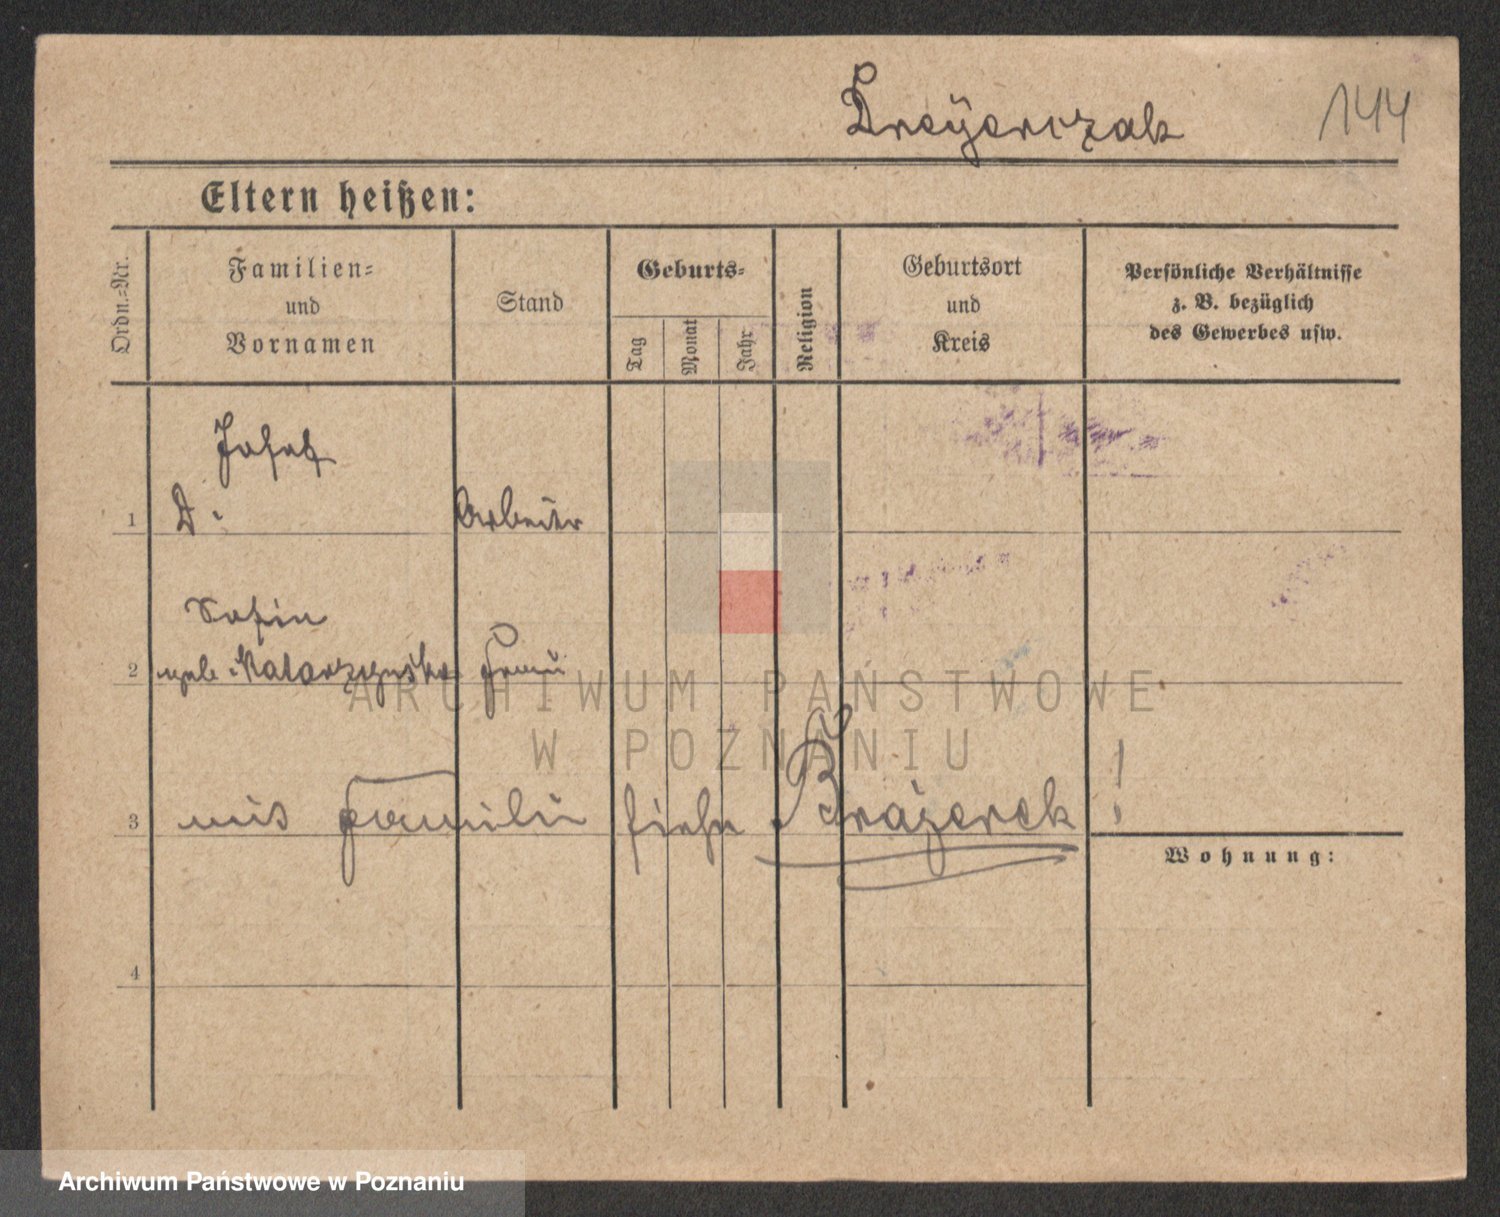 Dreÿerczak 144
Eltern heißen:
Ordn.-Nr.
Familien-
und
Vornamen
Stand
Geburts-
Tag
Monat
Jahr
Religion
Geburtsort
und
Kreis
Persönliche Verhältnisse
z. B. bezüglich
des Gewerbes usw.
Josef
1 D. Arbeiter
Sofia
2 Frau
3 mit Familie siehe !
Wohnung:
4
ARCHIWUM PAŃSTWOWE
W POZNANIU
Archiwum Państwowe w Poznaniu